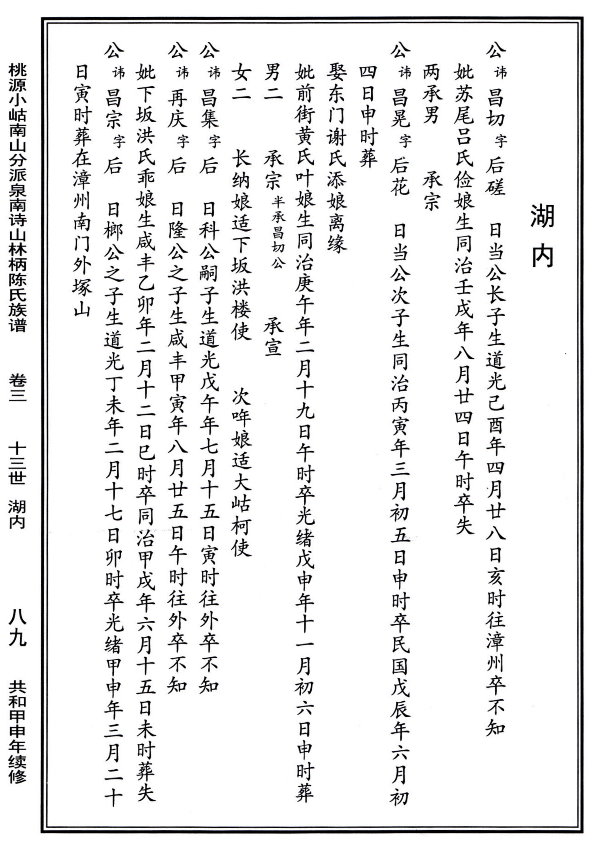 湖内
公讳昌切字后磋 日当公长子生道光己酉年四月廿八日亥时往漳州卒不知
妣苏尾吕氏俭娘生同治壬戌年八月廿四日午时卒失
两承男 承宗
公讳昌晃字后花 日当公次子生同治丙寅年三月初五日申时卒民国戊辰年六月初
四日申时葬
娶东门谢氏添娘离缘
妣前街黄氏叶娘生同治庚午年二月十九日午时卒光绪戊申年十一月初六日申时葬
男二 承宗半承昌切公 承宣
女二 长纳娘适下坂洪楼使 次哖娘适大岵柯使
公讳昌集字后 日科公嗣子生道光戊午年七月十五日寅时往外卒不知
公讳再庆字后 日隆公之子生咸丰甲寅年八月廿五日午时往外卒不知
妣下坂洪氏乖娘生咸丰乙卯年二月十二日巳时卒同治甲戌年六月十五日未时葬失
公讳昌宗字后 日榔公之子生道光丁未年二月十七日卯时卒光绪甲申年三月二十
日寅时葬在漳州南门外塚山
桃源小岵南山分派泉南诗山林柄陈氏族谱 卷三 十三世 湖内 八九 共和甲申年续修